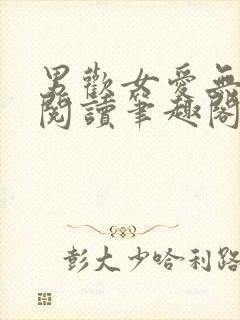 男歡女愛無
閱讀筆趣閣
彭大少哈利路